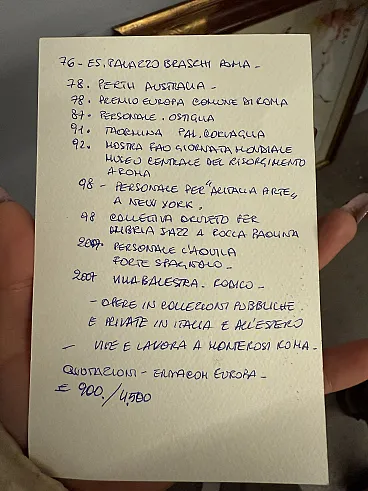 76 - ES. PALAZZO BRASCHI ROMA -
78. PERTH AUSTRALIA -
78. PREMIO EUROPA COMUNE DI ROMA
87. PERSONALE. OSTIGLIA
91. TAORMINA PAL. CORVAGLIA
92. MOSTRA FAO GIORNATA MONDIALE
MUSEO CENTRALE DEL RISORGIMENTO
A ROMA
98 - PERSONALE PER "ALITALIA ARTE"
A NEW YORK.
98 COLLETTIVA ORVIETO PER
UMBRIA JAZZ A ROCCA PAOLINA
PERSONALE L'AQUILA
FORTE SPAGNOLO -
2007 VILLA BALESTRA. RODIGO -
- OPERE IN COLLEZIONI PUBBLICHE
E PRIVATE IN ITALIA E ALL'ESTERO
- VIVE E LAVORA A MONTEROSI ROMA -
QUOTAZIONI - EUROPA -
€ 900./4500